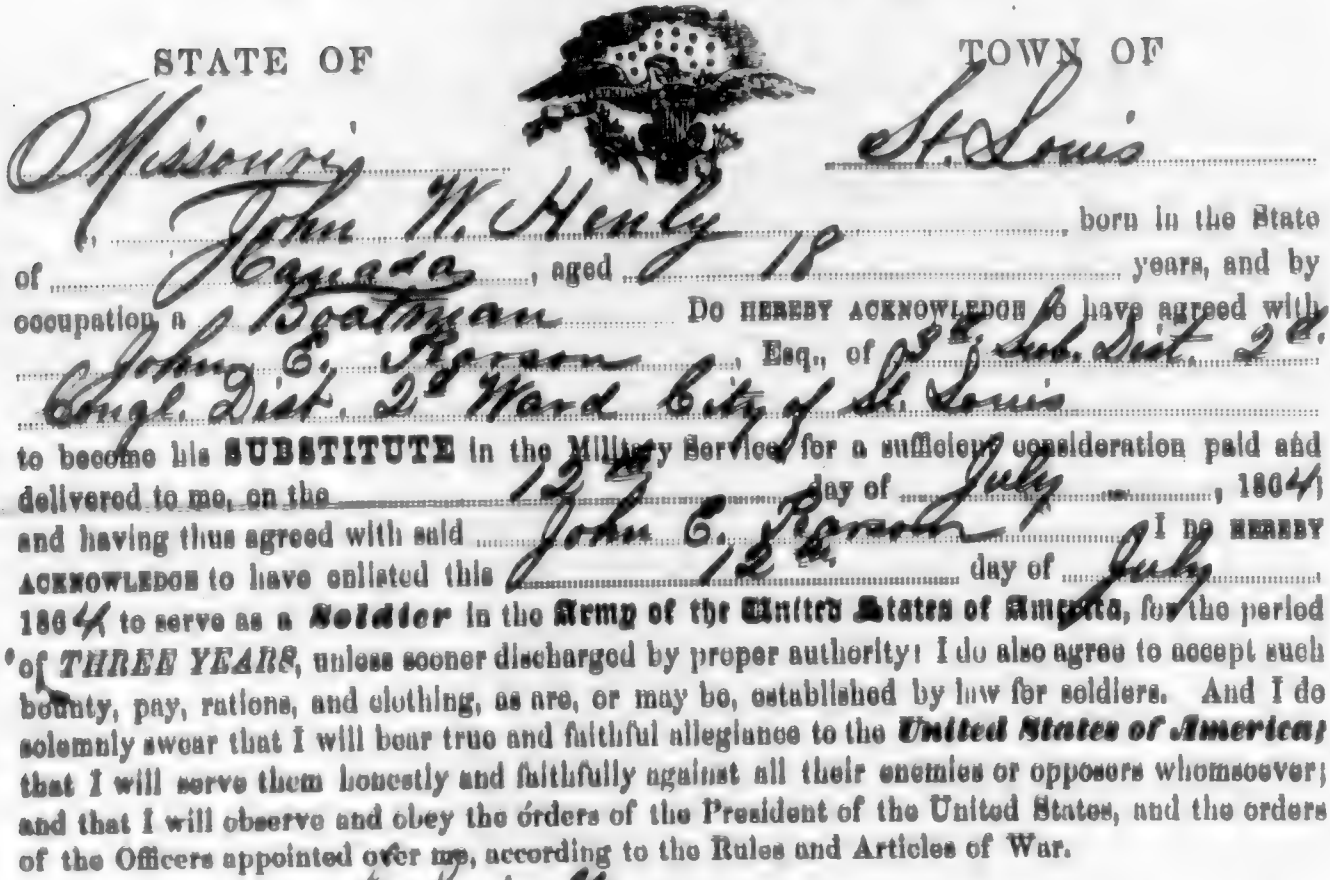 STATE OF
TOWN OF
Missouri
St. Louis
I, John W. Henly, born in the State
of Canada, aged 18 years, and by
occupation a Boatman Do HEREBY ACKNOWLEDGE to have agreed with
John E. , Esq., of 3rd Sub. Dist. 2d.
Congl. Dist. 2d Ward City of St. Louis
to become his SUBSTITUTE in the Military Service, for a sufficient consideration paid and
delivered to me, on the 12th day of July, 1864;
and having thus agreed with said John E. I DO HEREBY
ACKNOWLEDGE to have enlisted this 12th day of July
1864 to serve as a Soldier in the Army of the United States of America, for the period
of THREE YEARS, unless sooner discharged by proper authority: I do also agree to accept such
bounty, pay, rations, and clothing, as are, or may be, established by law for soldiers. And I do
solemnly swear that I will bear true and faithful allegiance to the United States of America;
that I will serve them honestly and faithfully against all their enemies or opposers whomsoever;
and that I will observe and obey the orders of the President of the United States, and the orders
of the Officers appointed over me, according to the Rules and Articles of War.